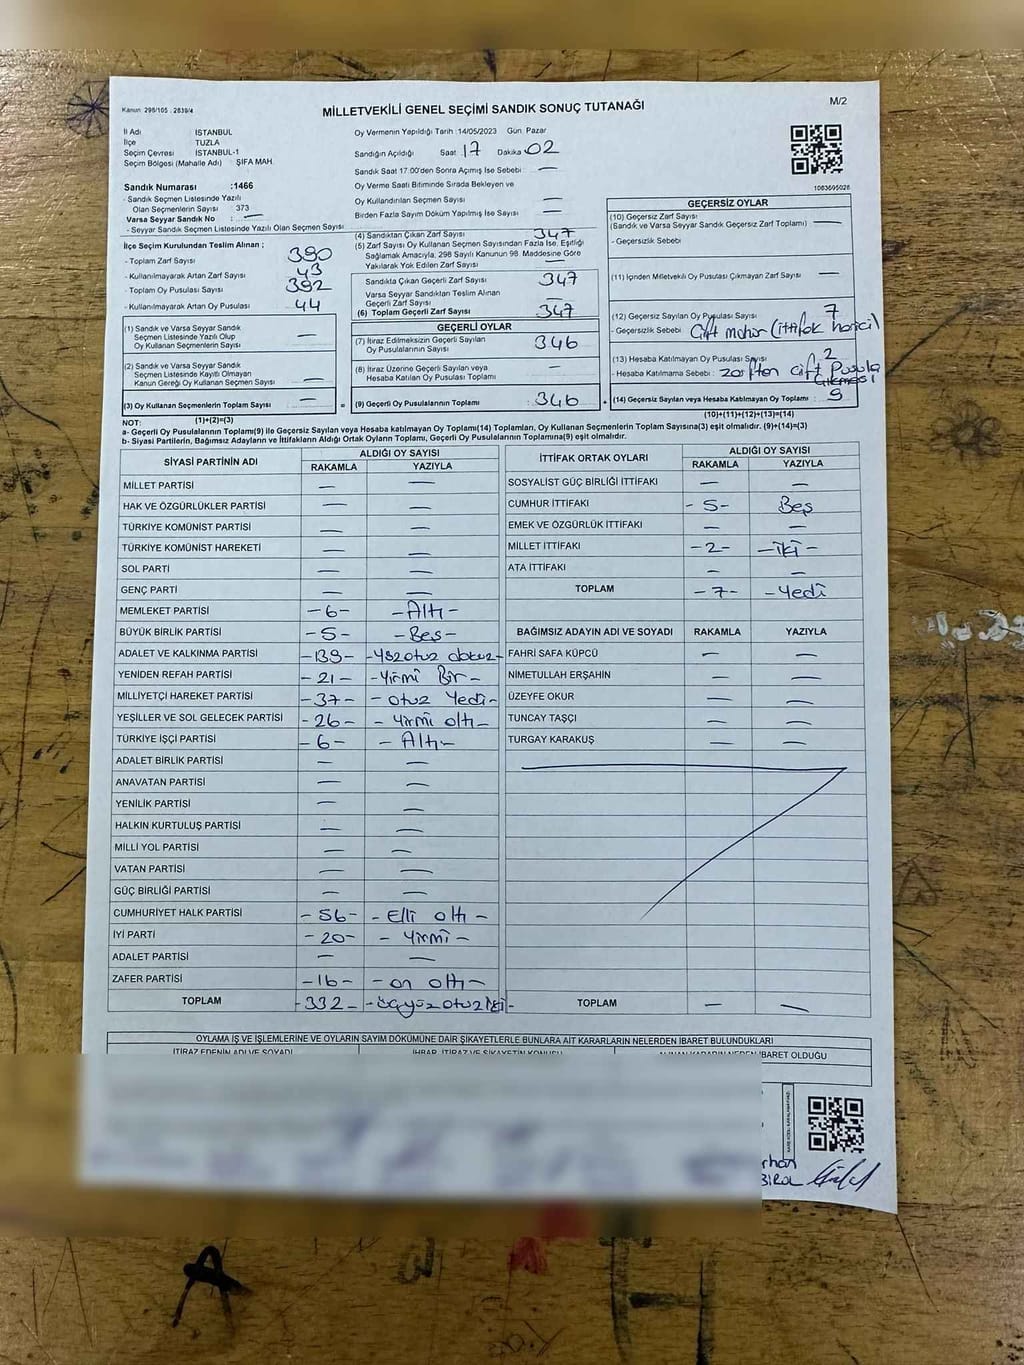 Kanun: 298/105 . 2839/4
MİLLETVEKİLİ GENEL SEÇİMİ SANDIK SONUÇ TUTANAĞI
M/2
İl Adı İSTANBUL
İlçe TUZLA
Seçim Çevresi İSTANBUL-1
Seçim Bölgesi (Mahalle Adı) ŞİFA MAH.
Oy Vermenin Yapıldığı Tarih :14/05/2023 Gün: Pazar
Sandığın Açıldığı Saat: 17 Dakika: 02
Sandık Saat 17.00'den Sonra Açımış İse Sebebi: —
Oy Verme Saati Bitiminde Sırada Bekleyen ve
Oy Kullandırılan Seçmen Sayısı —
Birden Fazla Sayım Döküm Yapılmış İse Sayısı : —
1063695026
Sandık Numarası :1466
- Sandık Seçmen Listesinde Yazılı
Olan Seçmenlerin Sayısı : 373
Varsa Seyyar Sandık No : —
- Seyyar Sandık Seçmen Listesinde Yazılı Olan Seçmen Sayısı
İlçe Seçim Kurulundan Teslim Alınan ;
- Toplam Zarf Sayısı 390
- Kullanılmayarak Artan Zarf Sayısı 43
- Toplam Oy Pusulası Sayısı : 392
- Kullanılmayarak Artan Oy Pusulası : 44
(1) Sandık ve Varsa Seyyar Sandık
Seçmen Listesinde Yazılı Olup
Oy Kullanan Seçmenlerin Sayısı —
(2) Sandık ve Varsa Seyyar Sandık
Seçmen Listesinde Kayıtlı Olmayan
Kanun Gereği Oy Kullanan Seçmen Sayısı —
(3) Oy Kullanan Seçmenlerin Toplam Sayısı : —
(1)+(2)=(3)
(4) Sandıktan Çıkan Zarf Sayısı 347
(5) Zarf Sayısı Oy Kullanan Seçmen Sayısından Fazla İse, Eşitliği
Sağlamak Amacıyla, 298 Sayılı Kanunun 98. Maddesine Göre
Yakılarak Yok Edilen Zarf Sayısı —
Sandıkta Çıkan Geçerli Zarf Sayısı : 347
Varsa Seyyar Sandıktan Teslim Alınan
Geçerli Zarf Sayısı —
(6) Toplam Geçerli Zarf Sayısı : 347
GEÇERLİ OYLAR
(7) İtiraz Edilmeksizin Geçerli Sayılan
Oy Pusulalarının Sayısı : 346
(8) İtiraz Üzerine Geçerli Sayılan veya
Hesaba Katılan Oy Pusulası Toplamı : —
(9) Geçerli Oy Pusulalarının Toplamı : 346
GEÇERSİZ OYLAR
(10) Geçersiz Zarf Sayısı
(Sandık ve Varsa Seyyar Sandık Geçersiz Zarf Toplamı) : —
- Geçersizlik Sebebi
(11) İçinden Milletvekili Oy Pusulası Çıkmayan Zarf Sayısı : —
(12) Geçersiz Sayılan Oy Pusulası Sayısı : 7
- Geçersizlik Sebebi : Çift mühür (ittifak harici)
(13) Hesaba Katılmayan Oy Pusulası Sayısı : 2
- Hesaba Katılmama Sebebi : zarftan çift Pusula
çıkması
(14) Geçersiz Sayılan veya Hesaba Katılmayan Oy Toplamı : 9
(10)+(11)+(12)+(13)=(14)
NOT:
a- Geçerli Oy Pusulalarının Toplamı(9) ile Geçersiz Sayılan veya Hesaba katılmayan Oy Toplamı(14) Toplamları, Oy Kullanan Seçmenlerin Toplam Sayısına(3) eşit olmalıdır. (9)+(14)=(3)
b- Siyasi Partilerin, Bağımsız Adayların ve İttifakların Aldığı Ortak Oyların Toplamı, Geçerli Oy Pusulalarının Toplamına(9) eşit olmalıdır.
SİYASİ PARTİNİN ADI ALDIĞI OY SAYISI
RAKAMLA YAZIYLA
MİLLET PARTİSİ — —
HAK VE ÖZGÜRLÜKLER PARTİSİ — —
TÜRKİYE KOMÜNİST PARTİSİ — —
TÜRKİYE KOMÜNİST HAREKETİ — —
SOL PARTİ — —
GENÇ PARTİ — —
MEMLEKET PARTİSİ -6- -Altı-
BÜYÜK BİRLİK PARTİSİ -5- -Beş-
ADALET VE KALKINMA PARTİSİ -139- -Yüzotuz dokuz-
YENİDEN REFAH PARTİSİ -21- -Yirmi Bir-
MİLLİYETÇİ HAREKET PARTİSİ -37- -otuz Yedi-
YEŞİLLER VE SOL GELECEK PARTİSİ -26- -Yirmi altı-
TÜRKİYE İŞÇİ PARTİSİ -6- -Altı-
ADALET BİRLİK PARTİSİ — —
ANAVATAN PARTİSİ — —
YENİLİK PARTİSİ — —
HALKIN KURTULUŞ PARTİSİ — —
MİLLİ YOL PARTİSİ — —
VATAN PARTİSİ — —
GÜÇ BİRLİĞİ PARTİSİ — —
CUMHURİYET HALK PARTİSİ -56- -Elli altı-
İYİ PARTİ -20- -Yirmi-
ADALET PARTİSİ — —
ZAFER PARTİSİ -16- -on altı-
TOPLAM -332- -üçyüz otuz iki-
İTTİFAK ORTAK OYLARI ALDIĞI OY SAYISI
RAKAMLA YAZIYLA
SOSYALİST GÜÇ BİRLİĞİ İTTİFAKI — —
CUMHUR İTTİFAKI -5- Beş
EMEK VE ÖZGÜRLÜK İTTİFAKI — —
MİLLET İTTİFAKI -2- -iki-
ATA İTTİFAKI — —
TOPLAM -7- -Yedi
BAĞIMSIZ ADAYIN ADI VE SOYADI RAKAMLA YAZIYLA
FAHRİ SAFA KÜPCÜ — —
NİMETULLAH ERŞAHİN — —
ÜZEYFE OKUR — —
TUNCAY TAŞÇI — —
TURGAY KARAKUŞ — —
TOPLAM — —
OYLAMA İŞ VE İŞLEMLERİNE VE OYLARIN SAYIM DÖKÜMÜNE DAİR ŞİKAYETLERLE BUNLARA AİT KARARLARIN NELERDEN İBARET BULUNDUKLARI
İTİRAZ EDENİN ADI VE SOYADI İHBAR, İTİRAZ VE ŞİKAYETİN KONUSU ALINAN KARARIN NEDEN İBARET OLDUĞU
rhan
BİROL